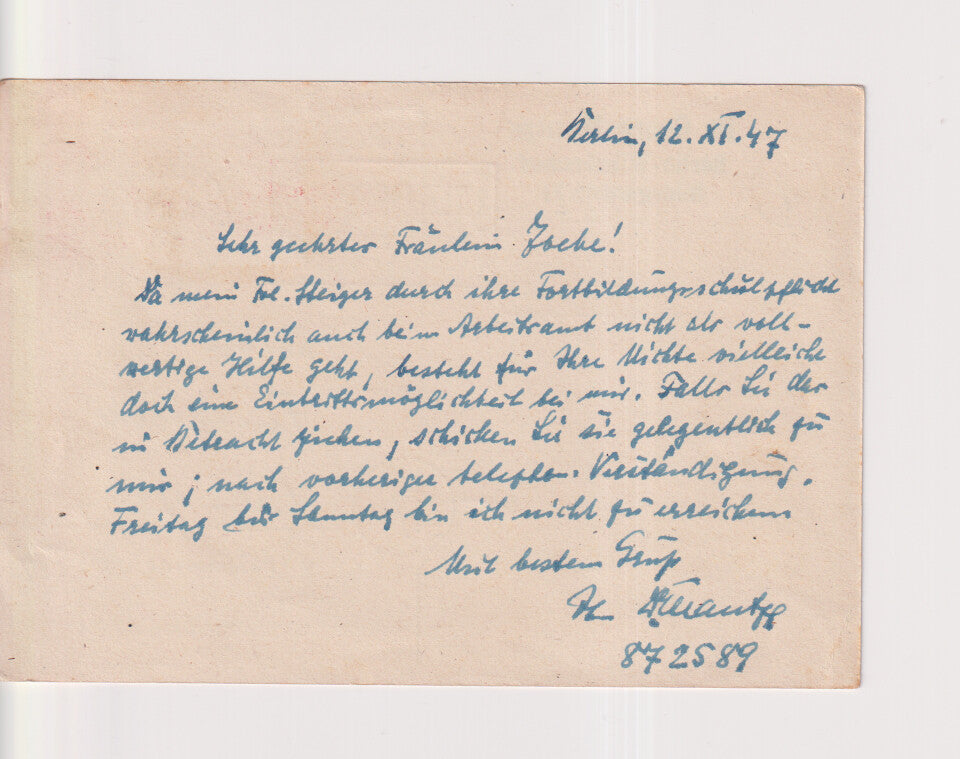 Berlin, 12. XI. 47
Sehr geehrtes Fräulein
Da mein Frl. Steiger durch ihre Fortbildungsschulpflicht
wahrscheinlich auch beim Arbeitsamt nicht als voll-
wertige Hilfe geht, besteht für Ihre Nichte vielleicht
doch eine Eintrittsmöglichkeit bei mir. Falls Sie das
in Betracht ziehen, schicken Sie sie gelegentlich zu
mir; nach vorheriger telephon. Verständigung.
Freitag bis Sonntag bin ich nicht zu erreichen
Mit bestem Gruß
Ihr
872589